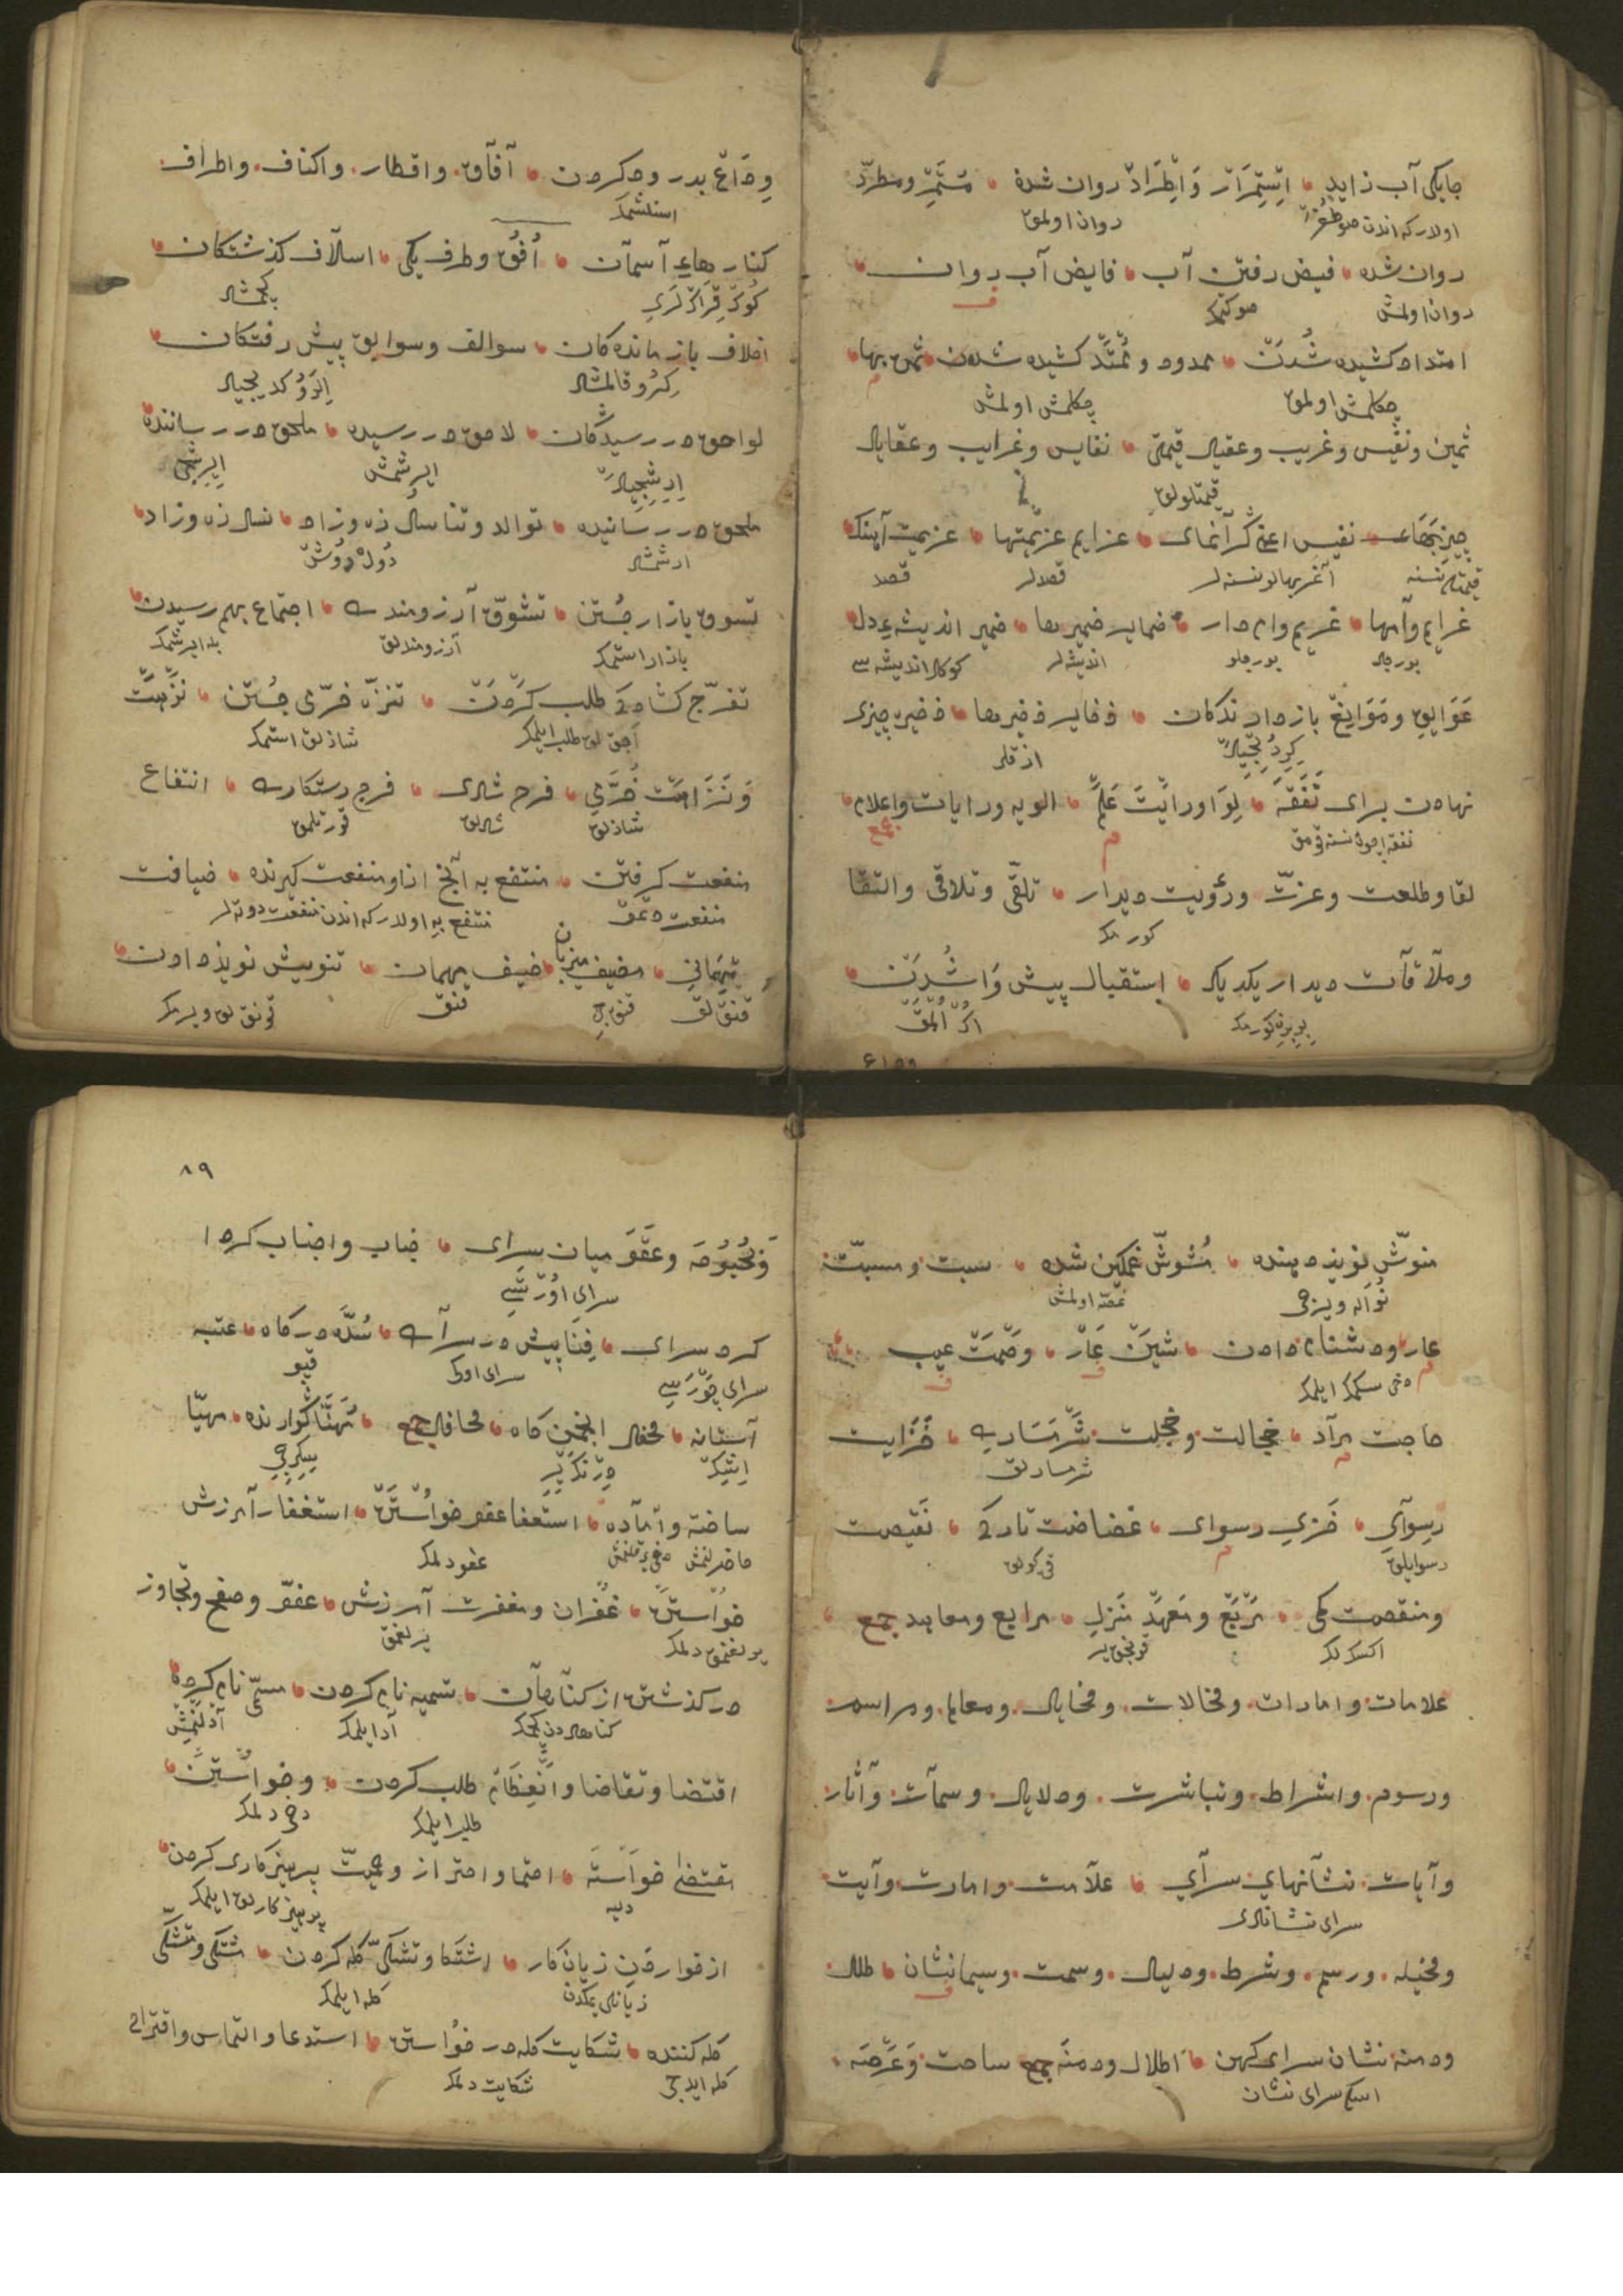 جایکی آب زاید استمرار واطراد روان شده مستمر ومطرد
اولدرکه اندن صو
روان اولمق
روان شده فیض رفتن آب فایض آب روان
روان اولمش
صو کتمک
امتداد کشیده شدن ممدود وممتد کشیده شدن ثمن بها
چکلمش اولمق
چکلمش اولمش
ثمین ونفیس وغریب وعقیله قیمتی نفایس وغرایب وعقایل
قیمتلولق
چیزبهای نفیس اعنی گرانمای عزایم عزیمتها عزیمت آهنک
قیمتلو نسنه
آغر بهالو نسنه لر
قصدلر
قصد
غرایم وامها غریم وام دار ضمایر ضمیرها ضمیر اندیشه دل
بورجلر
بورجلو
اندیشه لر
کوکل اندیشه سی
عوایق وموانع بازدارندکان ذخایر ذخیرها ذخیره چیزی
ازقلر
نهادن برای نفقه لوا ورایت علم الویه ورایات واعلام جمع
نفقه ایچون نسنه قومق
لقا وطلعت وعزت ورؤیت دیدار تلقی وتلاقی والتقا
کورمک
وملاقات دیدار یکدیکر استقبال پیش واشدن
بربرن کورمک
وداع بدرود کردن آفاق واقطار واکناف واطراف
اسنلشمک
کنارهای آسمان افق وطرف یکی اسلاف کذشتکان
کوک قراکلری
کچمشلر
اخلاف بازماندکان سوالف وسوابق پیش رفتکان
کرو قالمشلر
الرو کدیجیلر
لواحق در رسیدکان لاحق در رسیده ملحق در رساننده
ارشجیلر
ایرشمش
ملحق در رسانیده توالد وتناسل زه وزاد نسل زه وزاد
ارشمشلر
تسوق بازار جستن تشوق آرزومندی اجتماع بهم رسیدن
بازار استمک
آرزومندلق
بله ایرشمک
تفرج کشادکی طلب کردن تنزه خرمی جستن نزهت
آچقلق طلب ایلمک
شاذلق استمک
ونزاهت خرمی فرح شادی فرج رستکاری انتفاع
شاذلق
شادلق
قورتلمق
منفعت کرفتن منتفع به آنچ ازاو منفعت کیرنده ضیافت
منفعت دتمق
منتفع به اولدرکه اندن منفعت دوتلر
مهمانی مضیف میزبان ضیف مهمان تنویش نویذ دادن
قنقلق
قنقجی
قنق
قونقلق ویرمک
منوش نویذ دهنده مشوش غمکین شده سبت ومسبت
نواله ویرجی
غصه اولمش
عار ودشنام دادن شین عار وصمت عیب
دخی سکمک ایلمک
حاجت مراد خجالت وخجلت شرمساری خزایت
شرمسارلق
رسوای خزی رسوای غضاضت تارکی نقیصت
رسوایلق
ومنقصت کمی مربع ومعهد منزل مرابع ومعاهد جمع
اکسکلک
قونجق یر
علامات وامارات ومخالات ومخایل ومعالم ومراسم
ورسوم واشراط وتباشرت ودلایل وسمات وآثار
وآیات نشانهای سرای علامت وامارت وآیت
سرای نشانلری
ومخیله ورسم وشرط ودلیل وسمت وسیما نشان طلل
ودمنه نشان سرای کهن اطلال ودمنه جمع ساحت وعرصه
اسکی سرای نشان
۸۹
وبحبوحه وعقوه میان سرای جناب واجناب کرد ا
سرای اورتسی
کرد سرای فنا پیش در سرای سده درکاه عتبه
سرای چورسی
سرای اوکی
قپو
آستانه محفل انجمن کاه محافل جمع مهنا کوارنده مهیا
درنک یر
ساخته وآماده استعفا عفو خواستن استغفار آمرزش
حاضر لنمش
عفو دلمک
خواستن غفران ومغفرت آمرزش عفو وصفح وتجاوز
یرلغنمق دلمک
یرلغمق
درکذشتن از کناهان تسمیه نام کردن مسمی نام کرده
کناهلردن کچمک
آد ایلمک
آدلنمش
اقتضا وتقاضا طلب کردن وخواستن
طلب ایلمک
دخی دلمک
مقتضی خواسته احتما واحتراز وحمیت پرهیزکاری کردن
پرهیزکارلق ایلمک
از خوردن زیان کار اشتکا وتشکی کله کردن مشتکی ومتشکی
زیانلو یمکدن
کله ایلمک
کله کننده شکایت کله در خواستن استدعا والتماس واقتراح
کله ایدجی
شکایت دلمک